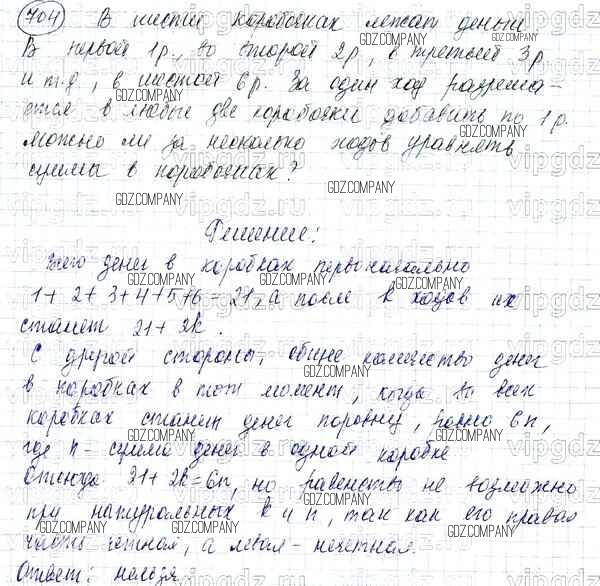 704 В шести коробочках лежат деньги
В первой 1р., во второй 2р, в третьей 3р
и т.д, в шестой 6р. За один ход разреша-
ется в любые две коробочки добавить по 1р.
Можно ли за несколько ходов уравнять
суммы в коробочках?
Решение:
Всего денег в коробках первоначально
1+2+3+4+5+6=21, а после k ходов их
станет 21+2k.
С другой стороны, общее количество денег
в коробках в тот момент, когда во всех
коробках станет денег поровну, равно 6n,
где n - сумма денег в одной коробке
Отсюда 21+2k=6n, но равенство не возможно
при натуральных k и n, так как его правая
часть четная, а левая - нечетная.
Ответ: нельзя